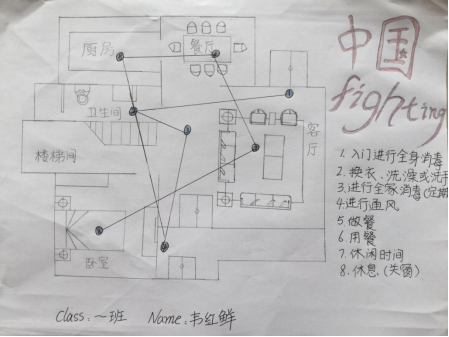 中国
fighting
厨房
餐厅
卫生间
客厅
楼梯间
卧室
1. 入门进行全身消毒
2. 换衣、洗澡或洗手
3. 进行全家消毒(定期
4. 进行通风
5. 做餐
6. 用餐
7. 休闲时间
8. 休息(失眠)
Class: 一班 Name: 韦红鲜